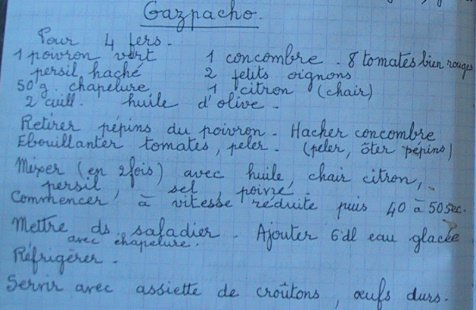 Gazpacho.
Pour 4 pers.
1 poivron vert 1 concombre - 8 tomates bien rouges
persil haché 2 petits oignons
50 g. chapelure 1 citron (chair)
2 cuill. huile d'olive.
Retirer pépins du poivron. Hacher concombre
Ebouillanter tomates, peler. (peler, ôter pépins)
Mixer (en 2 fois) avec huile, chair citron,
persil, sel, poivre.
Commencer à vitesse réduite puis 40 à 50 sec.
Mettre ds saladier. Ajouter 6 dl eau glacée
avec chapelure.
Réfrigérer.
Servir avec assiette de croûtons, œufs durs.